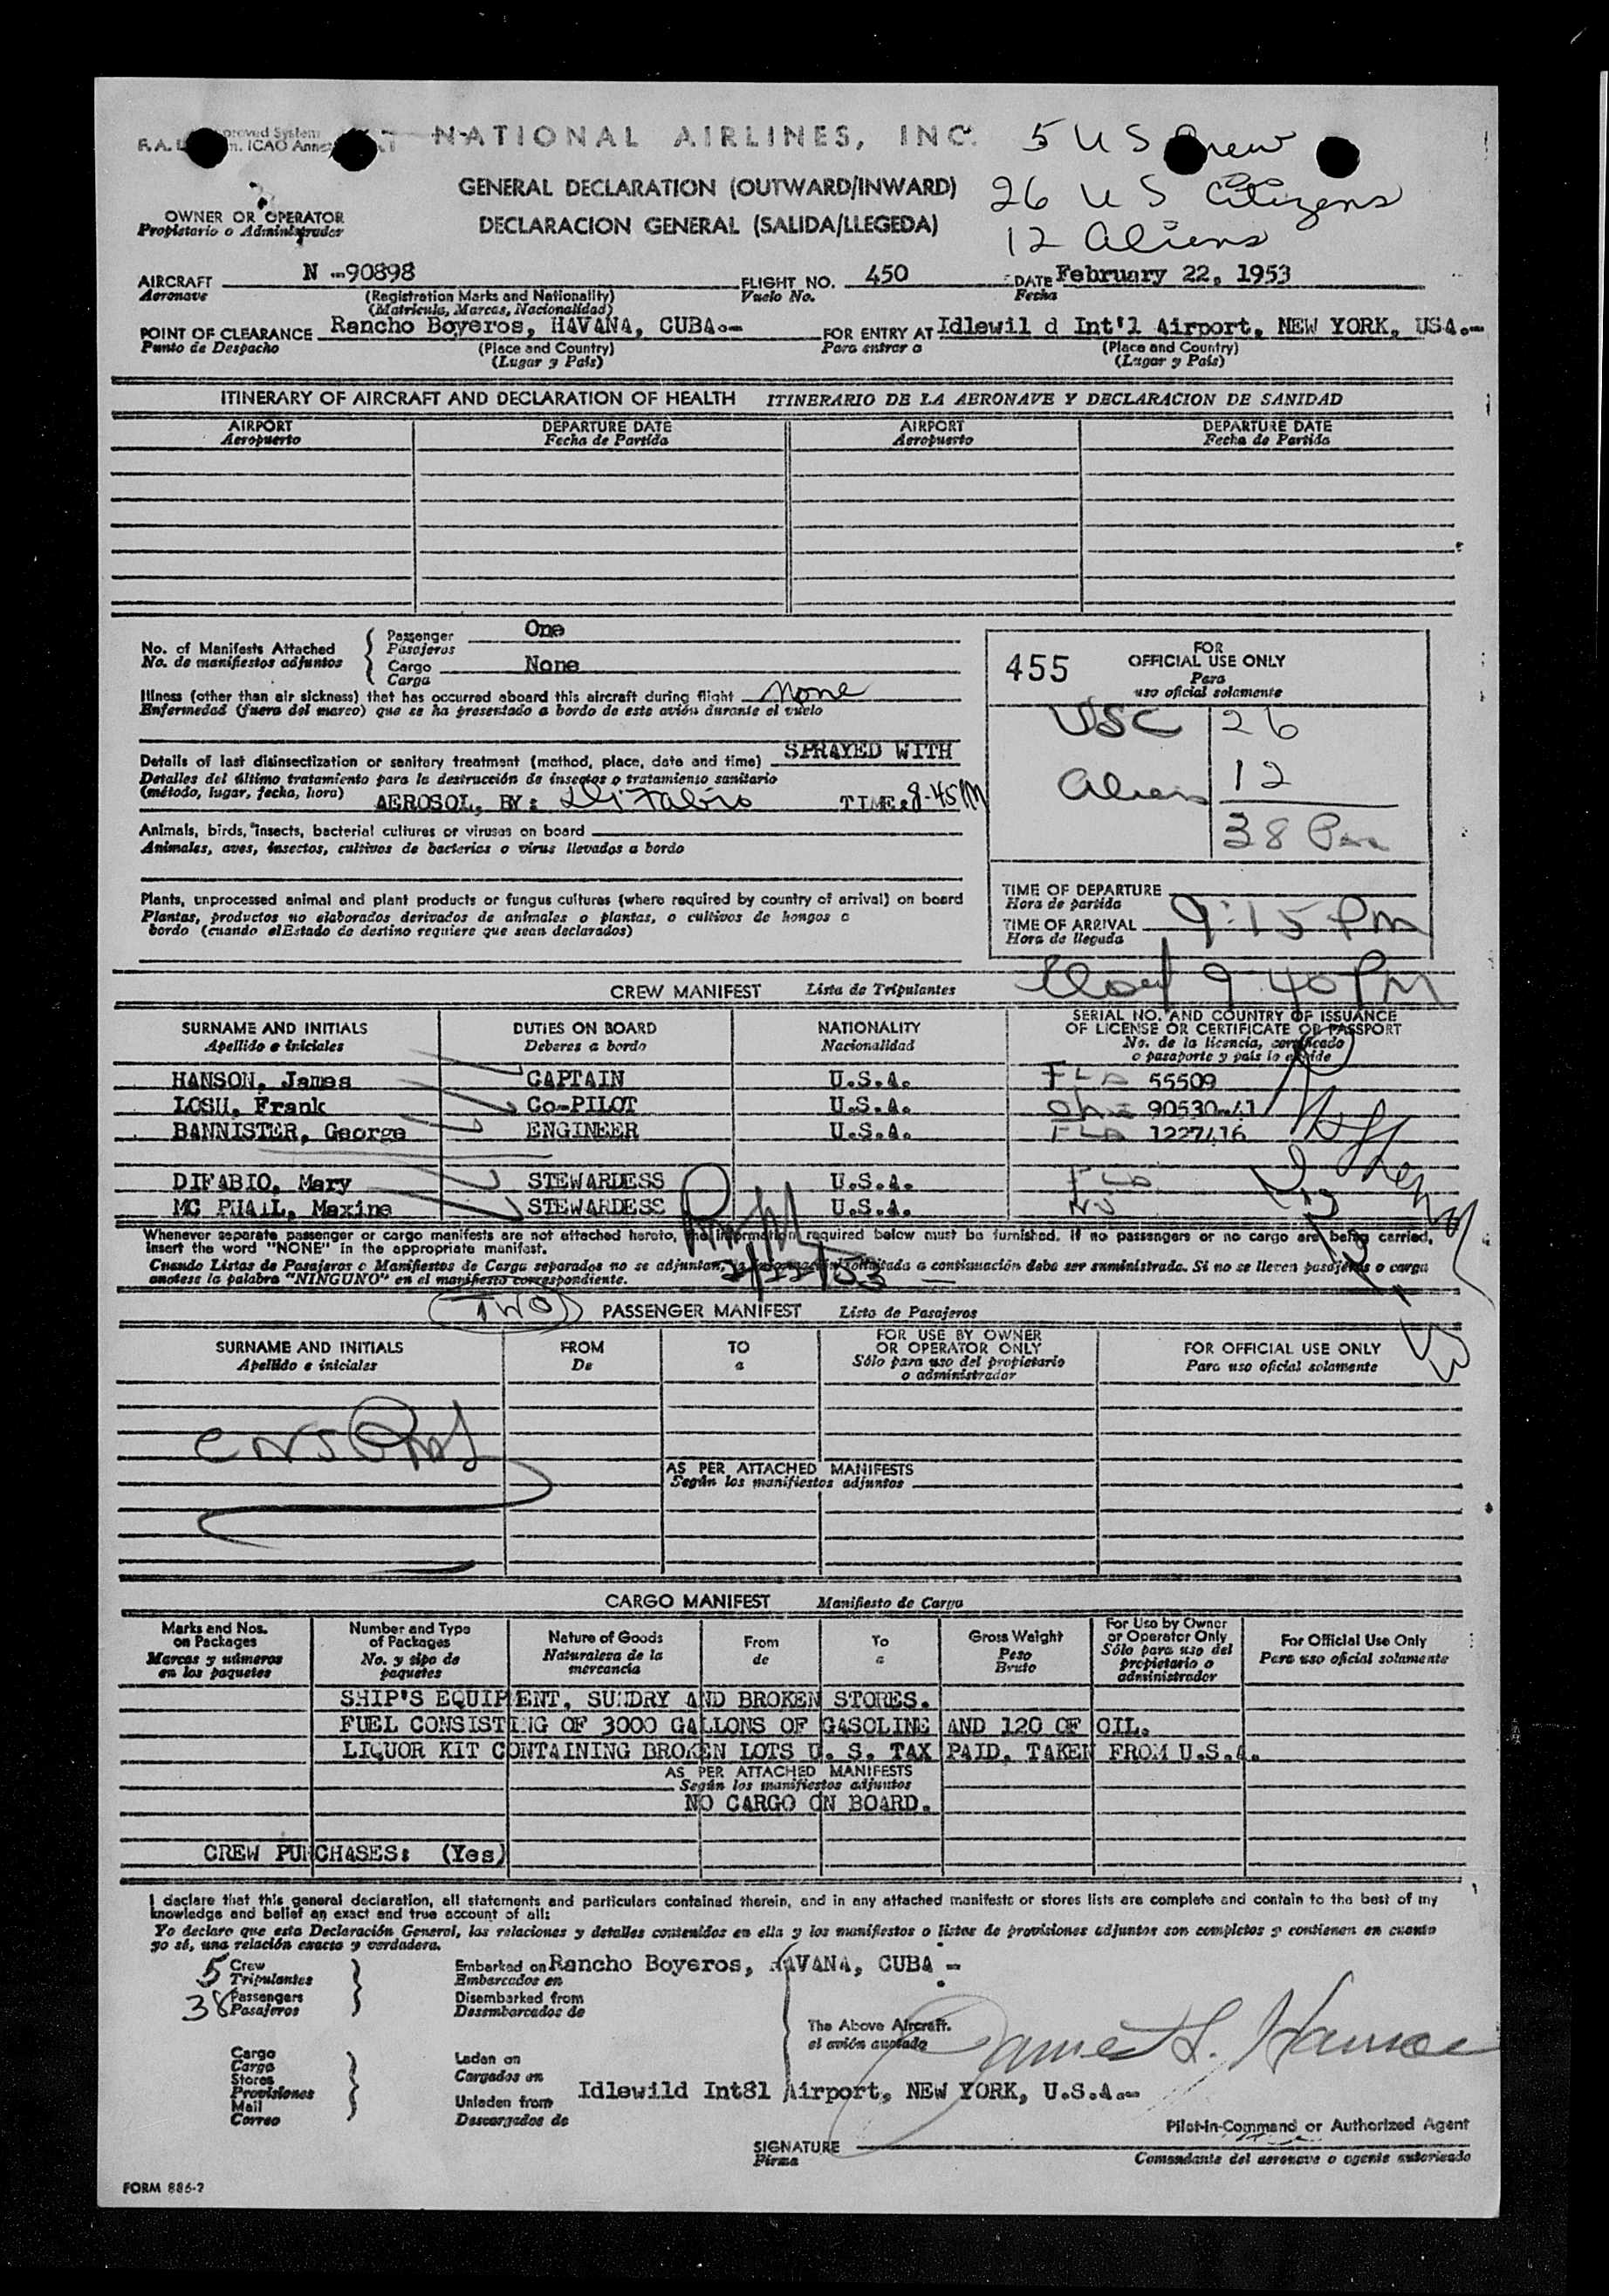 NATIONAL AIRLINES, INC.
5 U S Crew
GENERAL DECLARATION (OUTWARD/INWARD)
26 U S Citizens
DECLARACION GENERAL (SALIDA/LLEGEDA)
12 Aliens
OWNER OR OPERATOR
Propietario o Administrador
AIRCRAFT N-90898 FLIGHT NO. 450 DATE February 22, 1953
Aeronave (Registration Marks and Nationality) Vuelo No. Fecha
(Matricula, Marcas, Nacionalidad)
POINT OF CLEARANCE Rancho Boyeros, HAVANA, CUBA.- FOR ENTRY AT Idlewil d Int'l Airport, NEW YORK, USA.-
Punto de Despacho (Place and Country) Para entrar a (Place and Country)
(Lugar y País) (Lugar y País)
ITINERARY OF AIRCRAFT AND DECLARATION OF HEALTH ITINERARIO DE LA AERONAVE Y DECLARACION DE SANIDAD
AIRPORT DEPARTURE DATE AIRPORT DEPARTURE DATE
Aeropuerto Fecha de Partida Aeropuerto Fecha de Partida
No. of Manifests Attached
No. de manifiestos adjuntos
Passenger One
Pasajeros
Cargo None
Carga
Illness (other than air sickness) that has occurred aboard this aircraft during flight None
Enfermedad (fuera del mareo) que se ha presentado a bordo de este avión durante el vuelo
Details of last disinsectization or sanitary treatment (method, place, date and time) SPRAYED WITH
Detalles del último tratamiento para la destrucción de insectos o tratamiento sanitario
(método, lugar, fecha, hora) AEROSOL, BY: DiFabio TIME: 8-45 PM
Animals, birds, insects, bacterial cultures or viruses on board
Animales, aves, insectos, cultivos de bacterias o virus llevados a bordo
Plants, unprocessed animal and plant products or fungus cultures (where required by country of arrival) on board
Plantas, productos no elaborados derivados de animales o plantas, o cultivos de hongos a
bordo (cuando el Estado de destino requiere que sean declarados)
455
FOR
OFFICIAL USE ONLY
Para
uso oficial solamente
USC 26
Aliens 12
38
TIME OF DEPARTURE
Hora de partida
TIME OF ARRIVAL 9:15 PM
Hora de llegada
9:40 PM
CREW MANIFEST Lista de Tripulantes
SURNAME AND INITIALS DUTIES ON BOARD NATIONALITY SERIAL NO. AND COUNTRY OF ISSUANCE
OF LICENSE OR CERTIFICATE OR PASSPORT
Apellido e iniciales Deberes a bordo Nacionalidad No. de la licencia, certificado
o pasaporte y país lo expide
HANSON, James CAPTAIN U.S.A. FLA 55509
LOSH, Frank Co-PILOT U.S.A. 90530-41
BANNISTER, George ENGINEER U.S.A. FLA 1227416
DIFABIO, Mary STEWARDESS U.S.A. FLA
MC PHAIL, Maxine STEWARDESS U.S.A. NJ
Whenever separate passenger or cargo manifests are not attached hereto, the information required below must be furnished. If no passengers or no cargo are being carried,
insert the word "NONE" in the appropriate manifest.
Cuando Listas de Pasajeros o Manifiestos de Carga separados no se adjuntan, la información solicitada a continuación debe ser suministrada. Si no se lleven pasajeros o carga
anótese la palabra "NINGUNO" en el manifiesto correspondiente.
2/22/53
TWO PASSENGER MANIFEST Lista de Pasajeros
SURNAME AND INITIALS FROM TO FOR USE BY OWNER
OR OPERATOR ONLY FOR OFFICIAL USE ONLY
Apellido e iniciales De a Sólo para uso del propietario
o administrador Para uso oficial solamente
AS PER ATTACHED MANIFESTS
Según los manifiestos adjuntos
CARGO MANIFEST Manifiesto de Carga
Marks and Nos.
on Packages
Marcas y números
en los paquetes
Number and Type
of Packages
No. y tipo de
paquetes
Nature of Goods
Naturaleza de la
mercancía
From
de
To
a
Gross Weight
Peso
Bruto
For Use by Owner
or Operator Only
Sólo para uso del
propietario o
administrador
For Official Use Only
Para uso oficial solamente
SHIP'S EQUIPMENT, SUNDRY AND BROKEN STORES.
FUEL CONSISTING OF 3000 GALLONS OF GASOLINE AND 120 OF OIL.
LIQUOR KIT CONTAINING BROKEN LOTS U. S. TAX PAID, TAKEN FROM U.S.A.
AS PER ATTACHED MANIFESTS
Según los manifiestos adjuntos
NO CARGO ON BOARD.
CREW PURCHASES: (Yes)
I declare that this general declaration, all statements and particulars contained therein, and in any attached manifests or stores lists are complete and contain to the best of my
knowledge and belief an exact and true account of all:
Yo declaro que esta Declaración General, las relaciones y detalles contenidos en ella y los manifiestos o listas de provisiones adjuntos son completos y contienen en cuanto
yo sé, una relación exacta y verdadera.
5 Crew
Tripulantes
38 Passengers
Pasajeros
Embarked on Rancho Boyeros, HAVANA, CUBA -
Embarcados en
Disembarked from
Desembarcados de
The Above Aircraft.
el avión anotado
James L. Hanson
Cargo
Carga
Stores
Provisiones
Mail
Correo
Laden on
Cargados en
Idlewild Int8l Airport, NEW YORK, U.S.A.-
Unladen from
Descargados de
Pilot-in-Command or Authorized Agent
SIGNATURE
Firma
Comandante del aeronave o agente autorizado
FORM 886-2